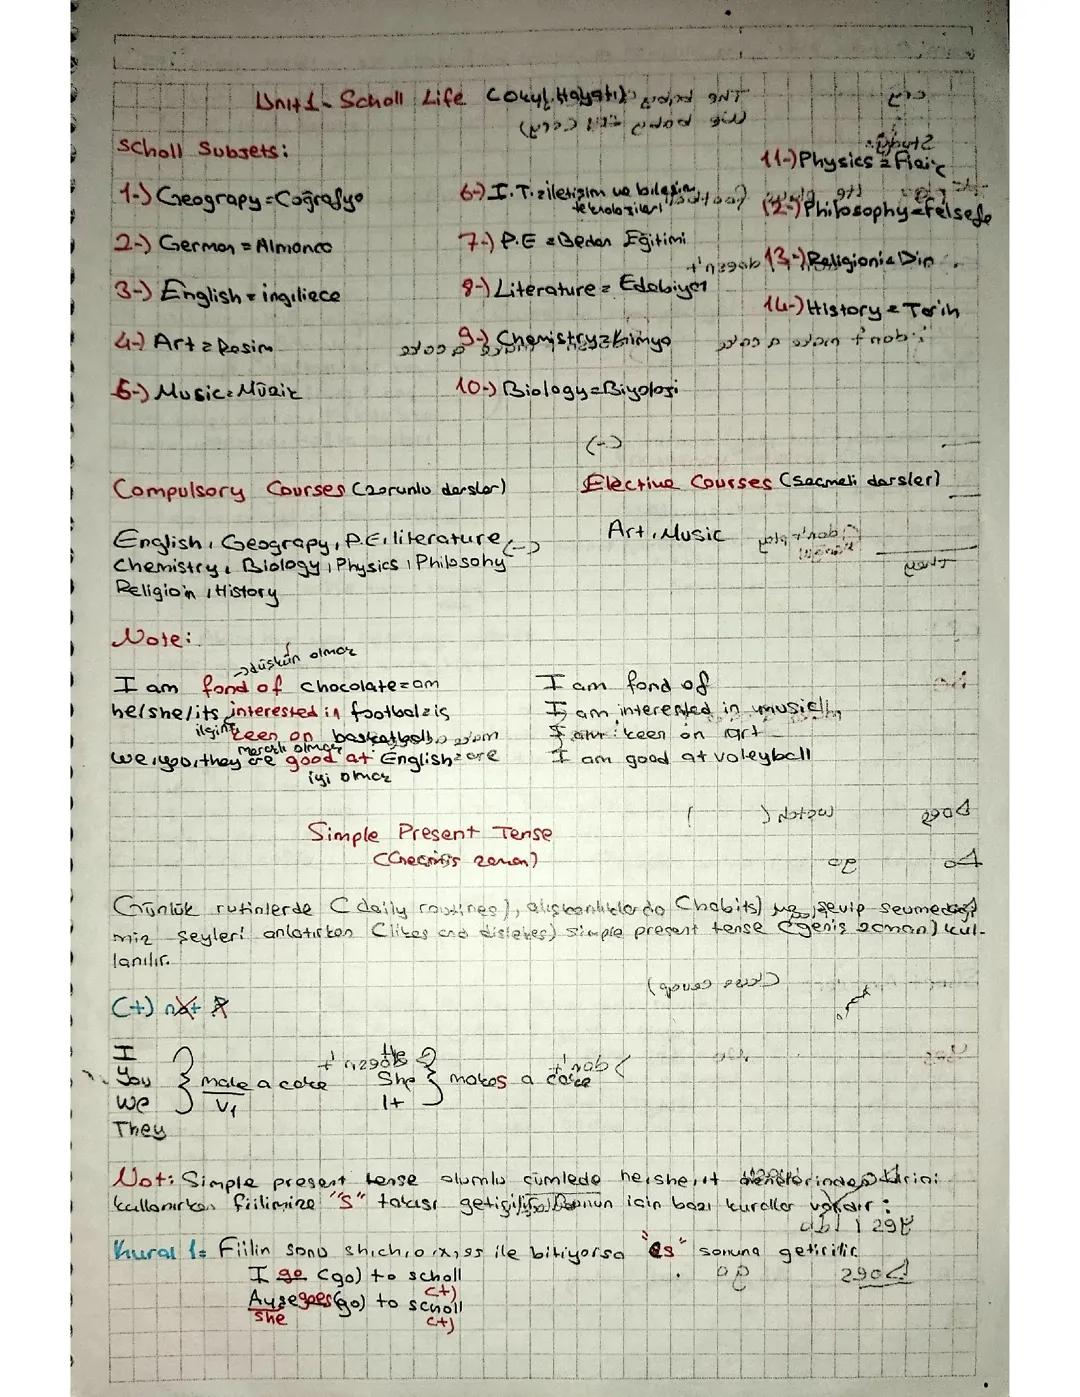 Unit 1 - Scholl Life (Okul Hayatı)
Scholl Subjets:
1-) Geograpy = Coğrafya
2-) German = Almanca
3-) English = ingiliece
4-) Art = Resim
5-) Music = Müzik
6-) I.T. = iletişim ve bilişim
teknolojileri
7-) P.E = Beden Eğitimi
8-) Literature = Edebiyat
9-) Chemistry = Kimya
10-) Biology = Biyoloji
11-) Physics = Fizik
12-) Philosophy = Felsefe
13-) Religion = Din
14-) History = Tarih
(-)
Compulsory Courses (zorunlu dersler)
English, Geograpy, P.E, literature (-)
Chemistry, Biology, Physics, Philosohy
Religion, History
Elective Courses (Seçmeli dersler)
Art, Music
Note:
→düşkün olmak
I am fond of chocolate = am
he/she/its interested in footbal = is
keen on basketball
meraklı olmak
we, you, they are good at English = are
iyi olmak
I am fond of
I am interested in music
I am keen on art
I am good at voleyball
Simple Present Tense
Günlük rutinlerde (daily routines), alışkanlıklarda (habits) ve sevip sevmediği
miz şeyleri anlatırken (likes and dislekes) simple present tense (geniş zaman) kul-
lanılır.
(+) not
I
You
We
They
make a cake
V1
He
She
It
makes a cake
Not: Simple present tense olumlu cümlede he, she, it birini
kullanırken fiilimize "s" takısı getirilir. Bunun için bazı kurallar vardır:
Kural 1= Fiilin sonu sh, ch, o, x, ss ile bitiyorsa "es" sonuna getirilir.
I go (go) to scholl
(+)
Ayşe goes (go) to scholl
she (+)